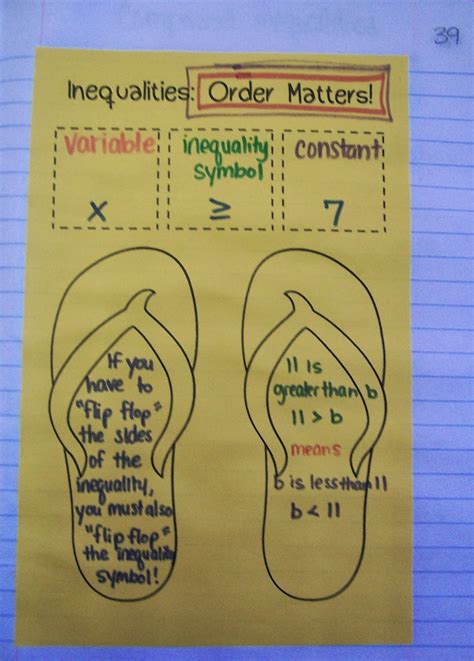 39
Inequalities: Order Matters!
variable
x
inequality
symbol
≥
constant
7
If you
have to
"flip flop"
the sides
of the
inequality,
you must also
"flip flop"
the inequality
symbol!
11 is
greater than b
11 > b
means
b is less than 11
b < 11